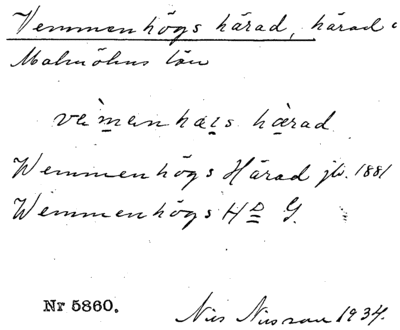 Vemmenhögs härad, härad
Malmöhus län
härad
Wemmenhögs Härad jb. 1881
Wemmenhögs HD G.
Nr 5860.
Nils Nilsson 1934.